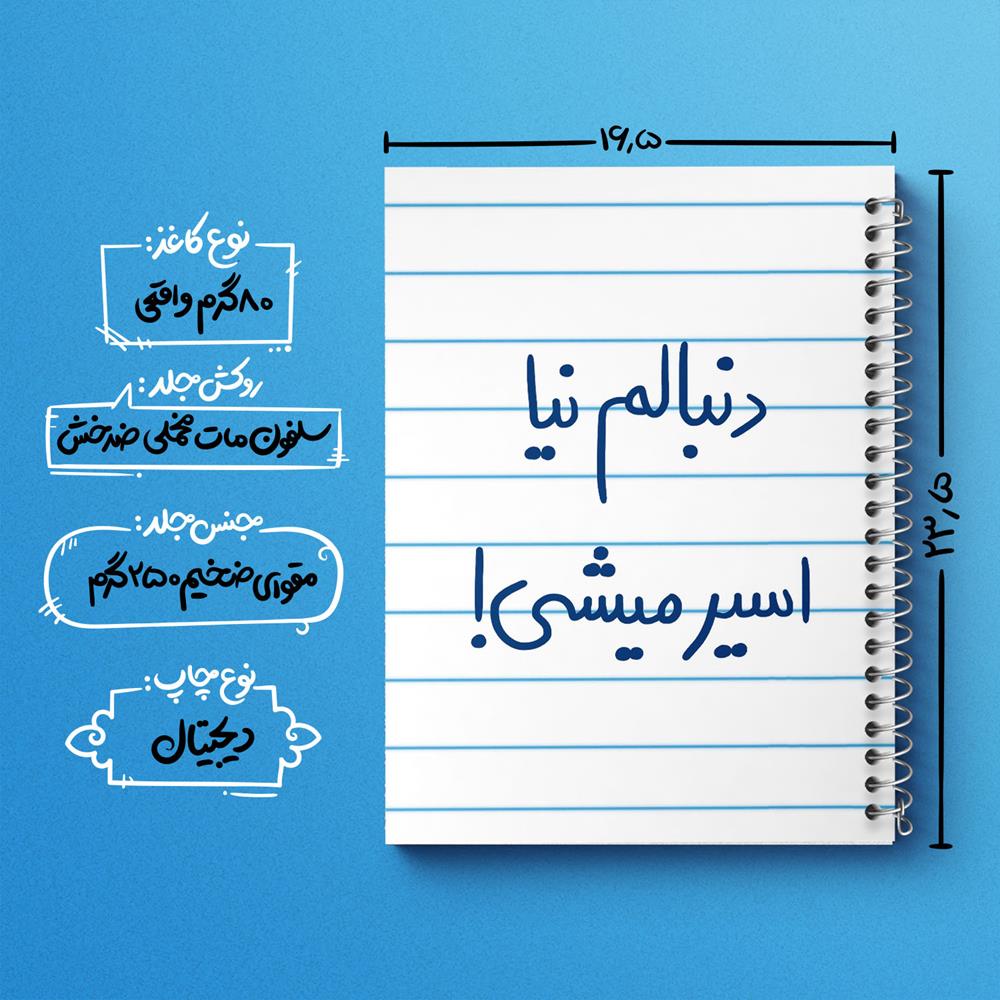 ۱۶٫۵
۲۳٫۵
دنبالم نیا
اسیر میشی!
نوع کاغذ:
۸۰ گرم واقعی
روکش جلد:
سلفون مات مخملی ضدخش
جنس جلد:
مقوای ضخیم ۲۵۰ گرم
نوع چاپ:
دیجیتال